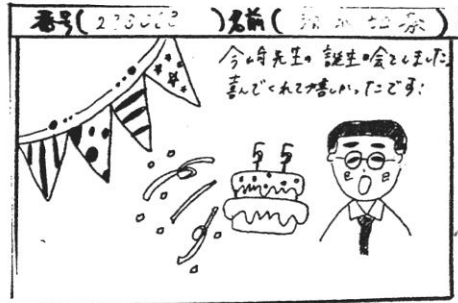 番号( )名前( )
今崎先生の誕生日会をしました。
喜んでくれて嬉しかったです!
55